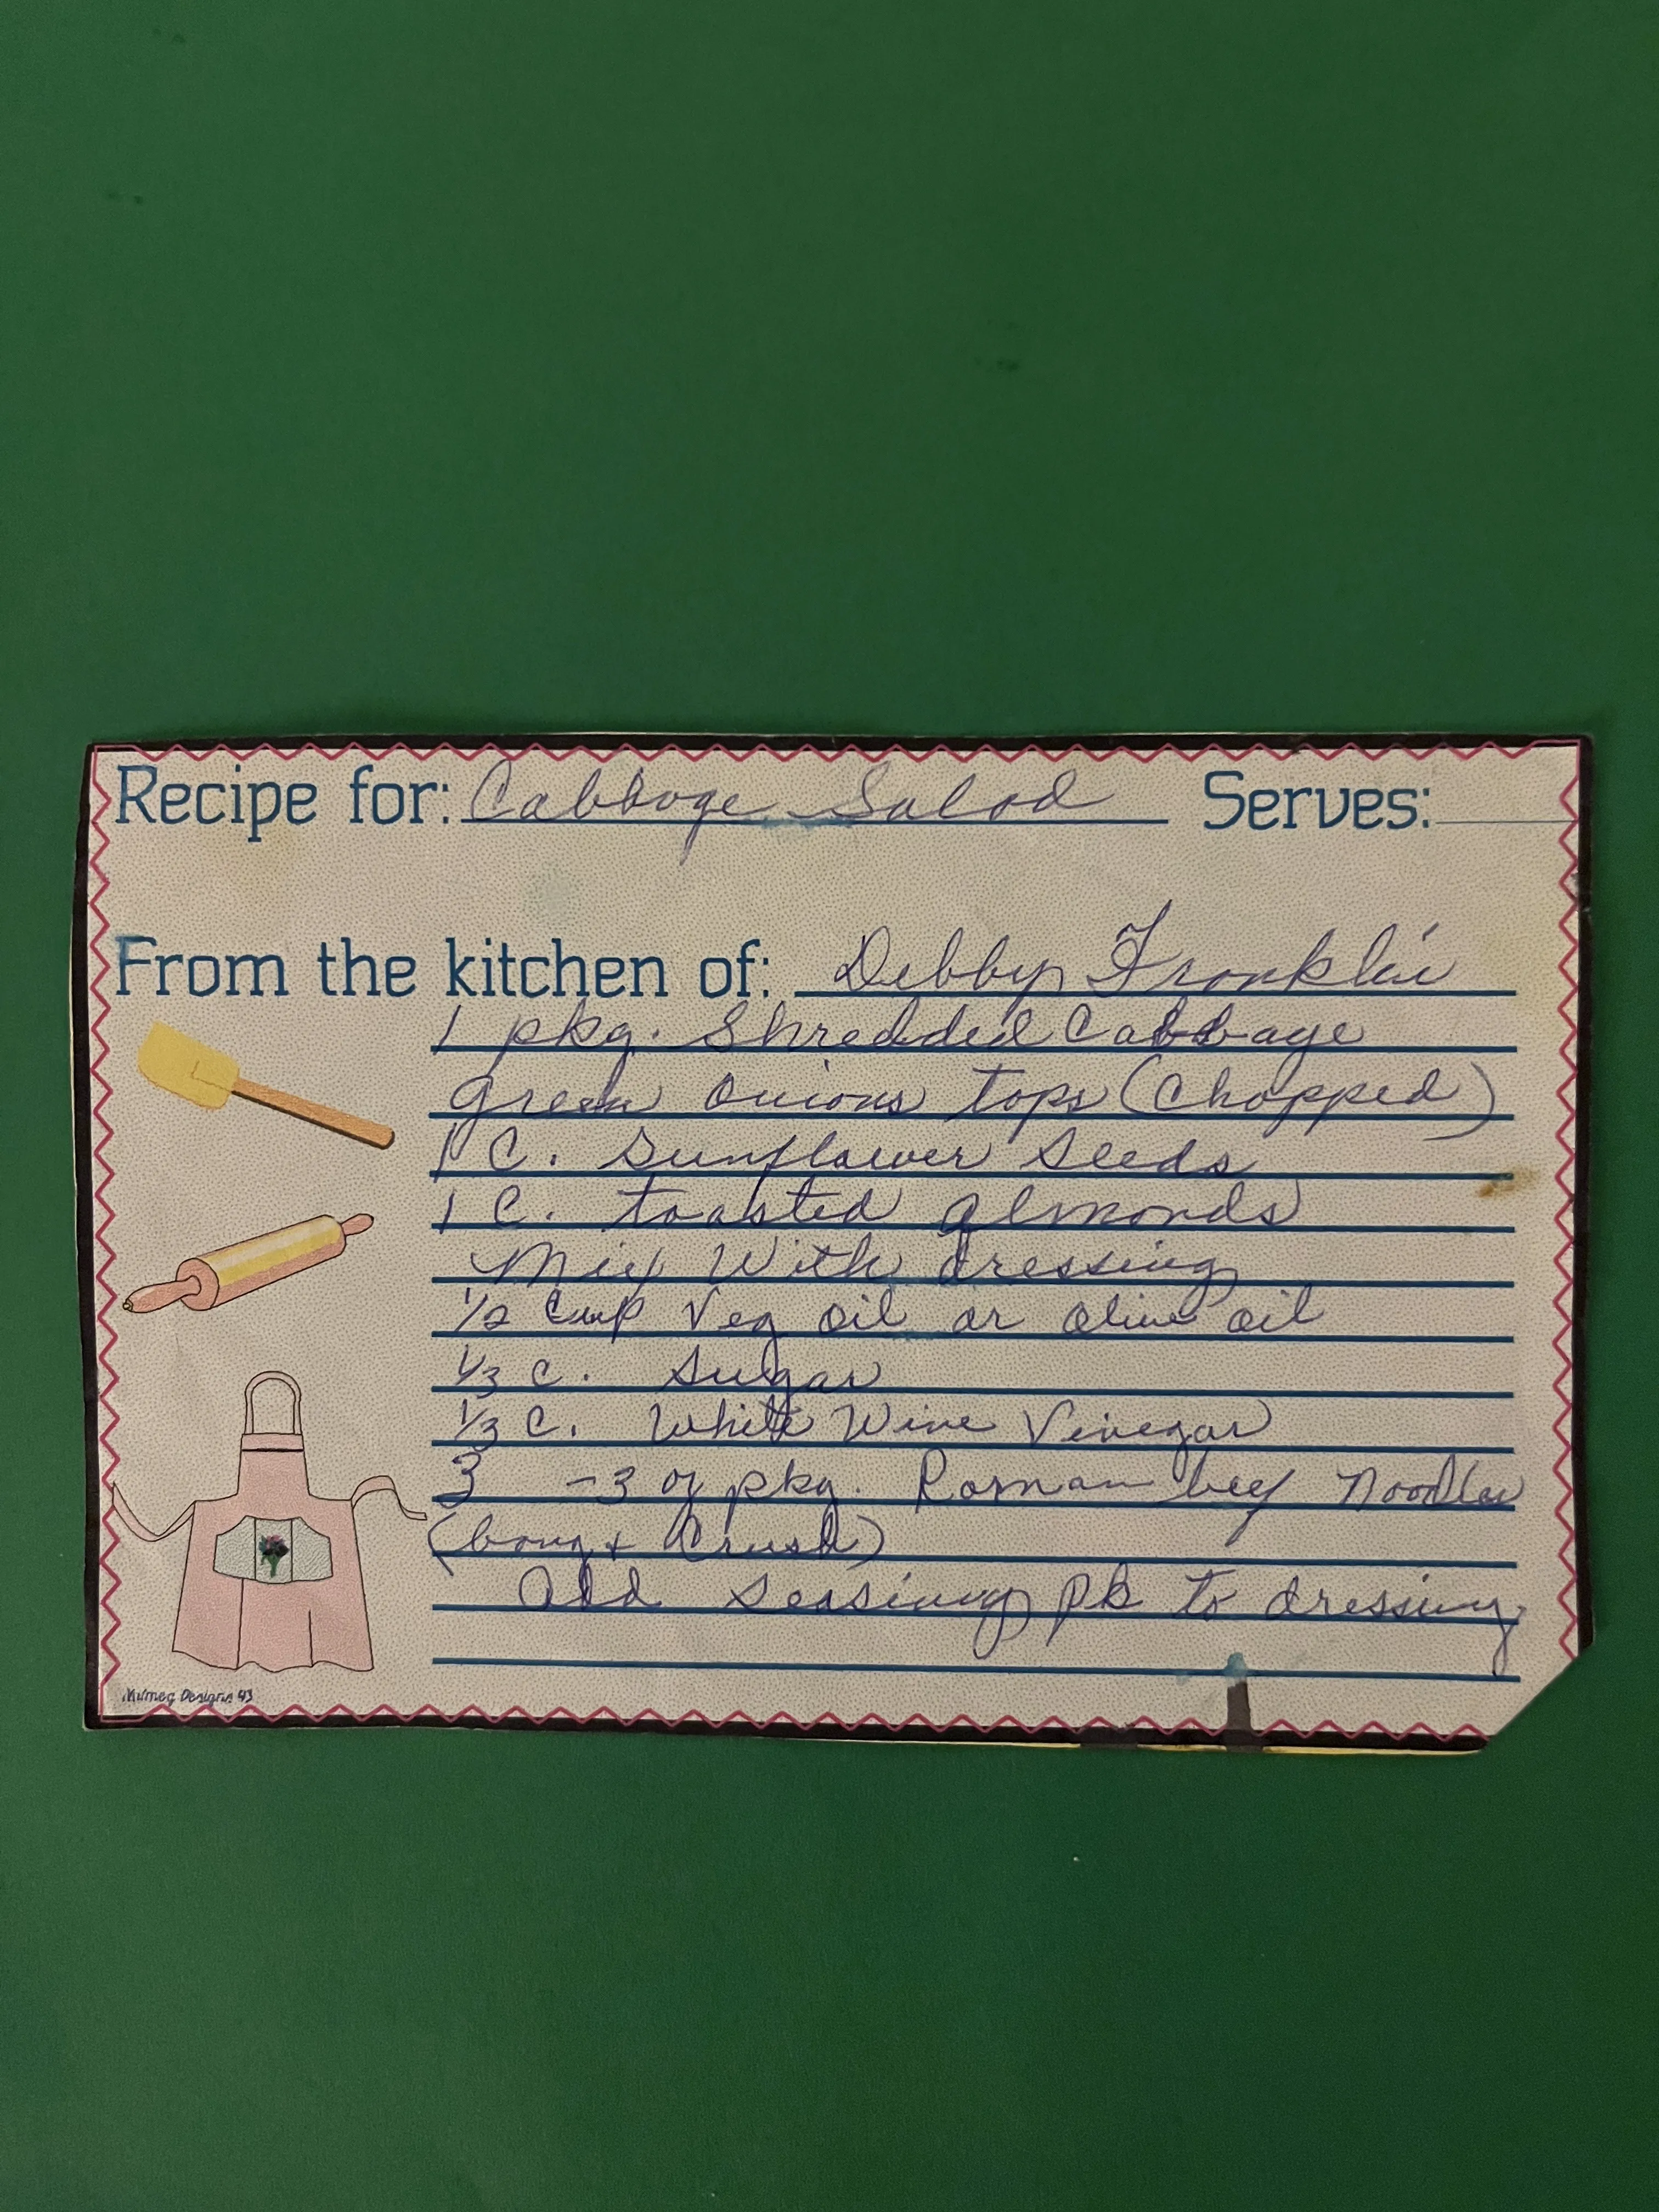 Recipe for: Cabbage Salad Serves:
From the kitchen of: Debby Franklin
1 pkg. Shredded Cabbage
green onions tops (Chopped)
1 C. Sunflower Seeds
1 C. toasted almonds
Mix With dressing
1/2 cup Veg oil or olive oil
1/3 C. Sugar
1/3 C. White Wine Vinegar
3 - 3 oz pkg. Roman beef Noodles
( + Crush)
add seasing pk to dressing
Nutmeg Designs 93